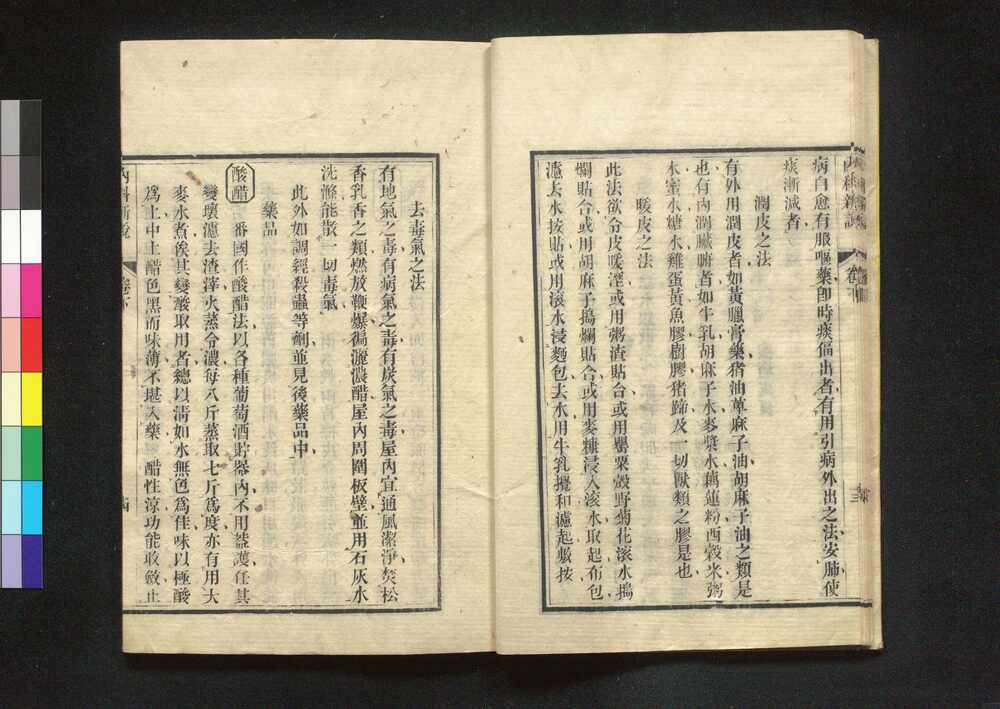 病自愈有服嘔藥卽時痰傴出者有用引病外出之法安肺使
痰漸減者
潤皮之法
有外用潤皮者如黃臘膏藥猪油萆麻子油胡麻子油之類是
也有內潤臟腑者如牛乳胡麻子水麥漿水藕蓮粉西穀米粥
水蜜水糖水雞蛋黃魚膠樹膠猪蹄及一切獸類之膠是也
暖皮之法
此法欲令皮暖溼或用粥渣貼台或用罌粟殼野菊花滾水搗
爛貼台或用胡麻子搗爛貼台或用麥糠浸入滚水取起布包
瀘去水按貼或用滚水浸麵包去水用牛乳攪和瀘起敷按
內科新說
卷下
去毒氣之法
有地氣之毒有病氣之毒有炭氣之毒屋內宜通風潔淨焚松
香乳香之類燃放鞭爆徧灑濃醋屋內周圍板壁並用石灰水
洗滌能散一切毒氣
此外如調經殺蟲等劑並見後藥品中
藥品
酸醋 番國作酸醋法以各種葡萄酒貯器內不用蓋護任其
變壞濾去渣滓火蒸令濃每八斤蒸取七斤爲度亦有用大
麥水煮俟其變酸取用者總以清如水無色爲佳味以極酸
爲上中土醋色黑而味薄不堪入藥 醋性涼功能收斂止
內科新說
卷下